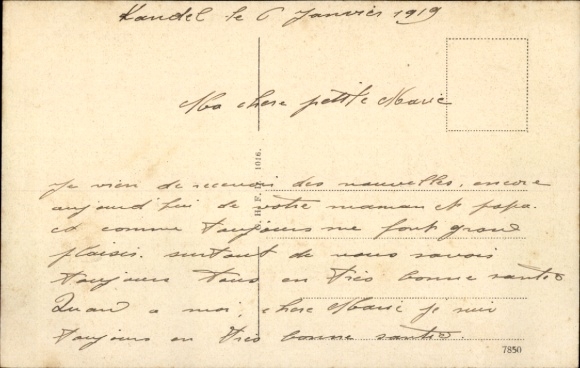 Kandel le 6 Janvier 1919
Ma chere petite Marie
Je vien de recevoir des nouvelles, encore
aujourd'hui de votre maman et papa.
et comme toujours me font grand
plaisir. surtout de vous savoir
toujours tous en très bonne santé
Quand a moi, chere Marie je suis
toujours en très bonne santée.
1016.
7850